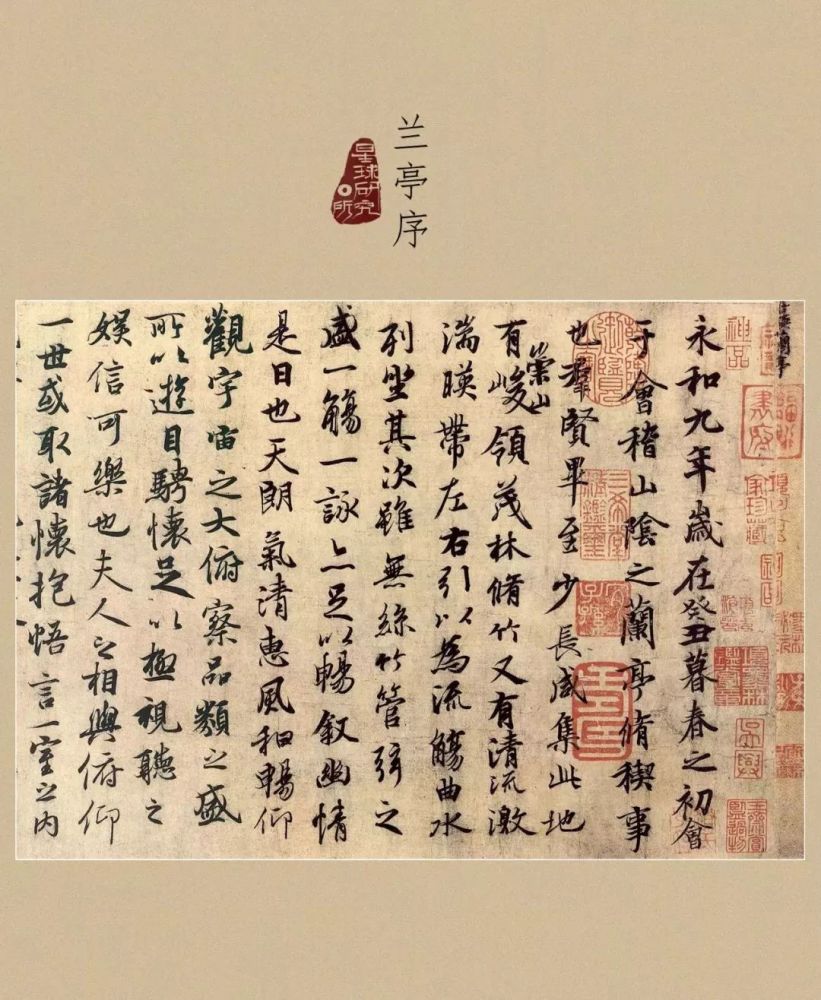 兰亭序
星球研究所
永和九年歲在癸丑暮春之初會
于會稽山陰之蘭亭脩稧事
也羣賢畢至少長咸集此地
有崇山峻領茂林脩竹又有清流激
湍暎帶左右引以為流觴曲水
列坐其次雖無絲竹管弦之
盛一觴一詠亦足以暢敘幽情
是日也天朗氣清惠風和暢仰
觀宇宙之大俯察品類之盛
所以遊目騁懷足以極視聽之
娛信可樂也夫人之相與俯仰
一世或取諸懷抱悟言一室之內
神品